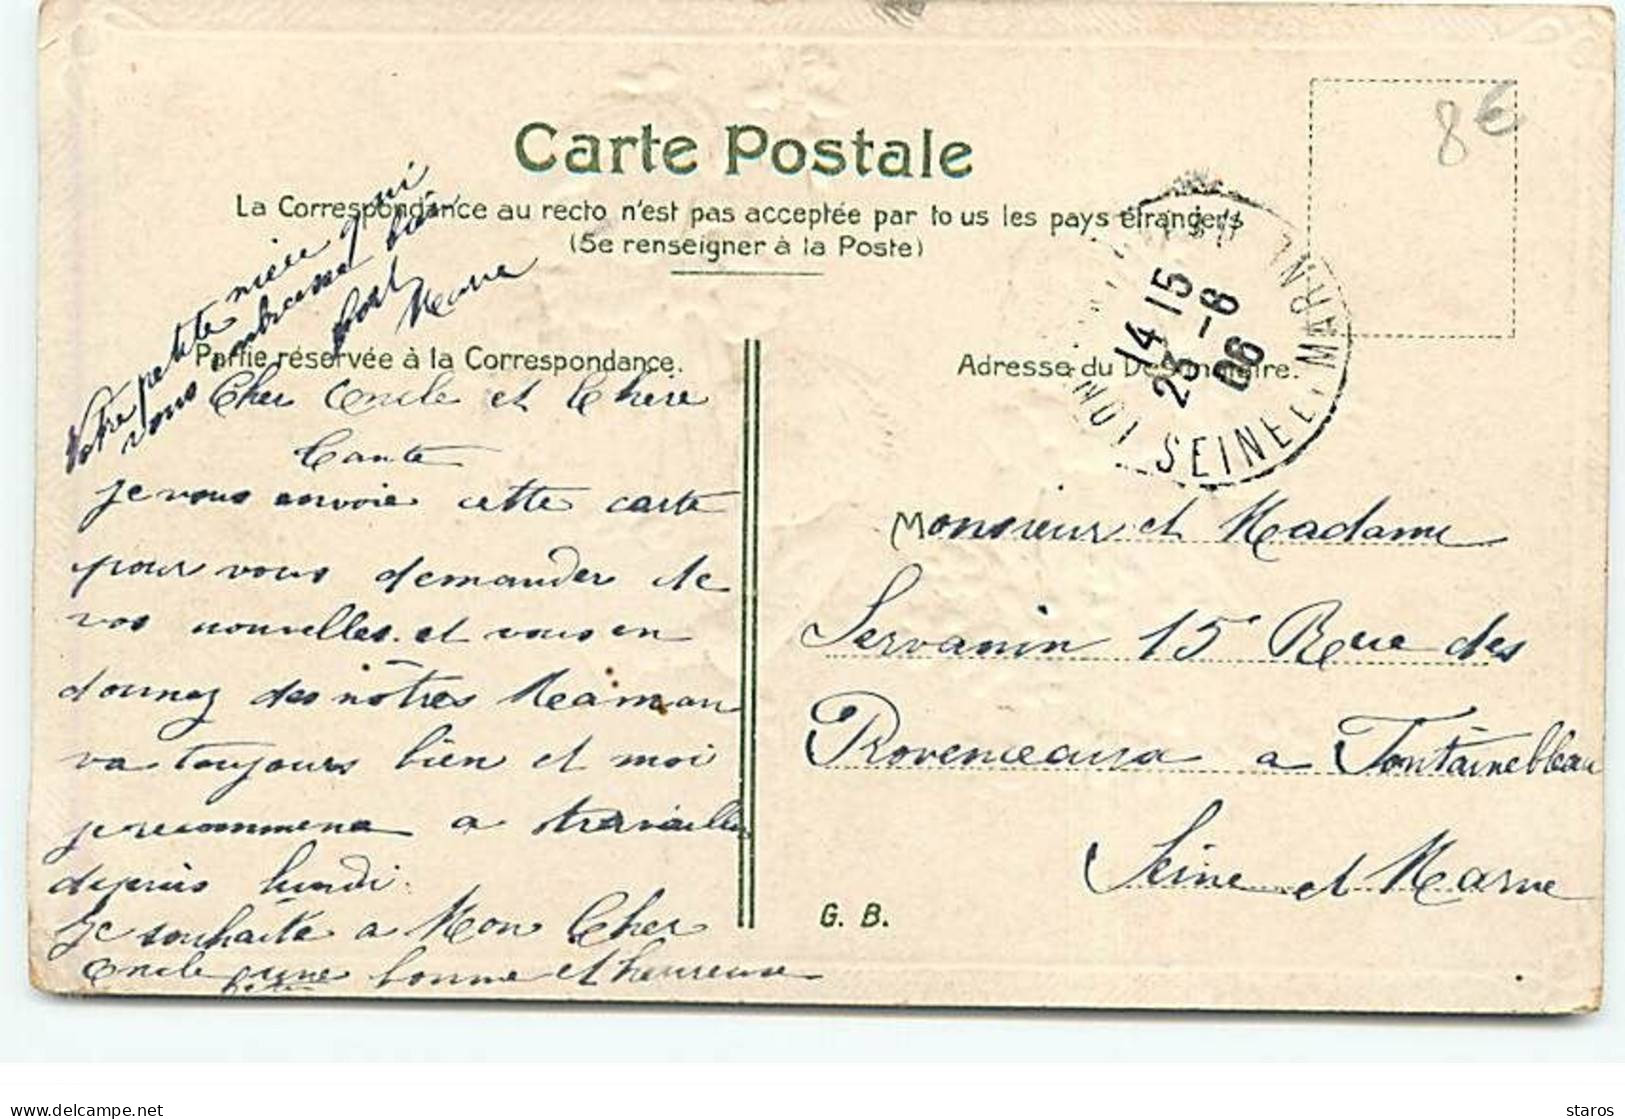 Carte Postale
La Correspondance au recto n'est pas acceptée par tous les pays étrangers
(Se renseigner à la Poste)
8€
Partie réservée à la Correspondance.
Adresse du Destinataire.
14 15
23 -6
06
SEINE ET MARNE
Votre petite niece qui
vous embrasse bien
fort
Marie
Cher Oncle et Chère
Tante
je vous envoie cette carte
pour vous demander de
vos nouvelles et vous en
donnez des nôtres Maman
va toujours bien et moi
je recommence a travailler
depuis lundi.
Je souhaite a Mon Cher
Oncle une bonne et heureuse
fête
Monsieur et Madame
Servanin 15 Rue des
Provenceaux a Fontainebleau
Seine et Marne
G. B.
delcampe.net
staros